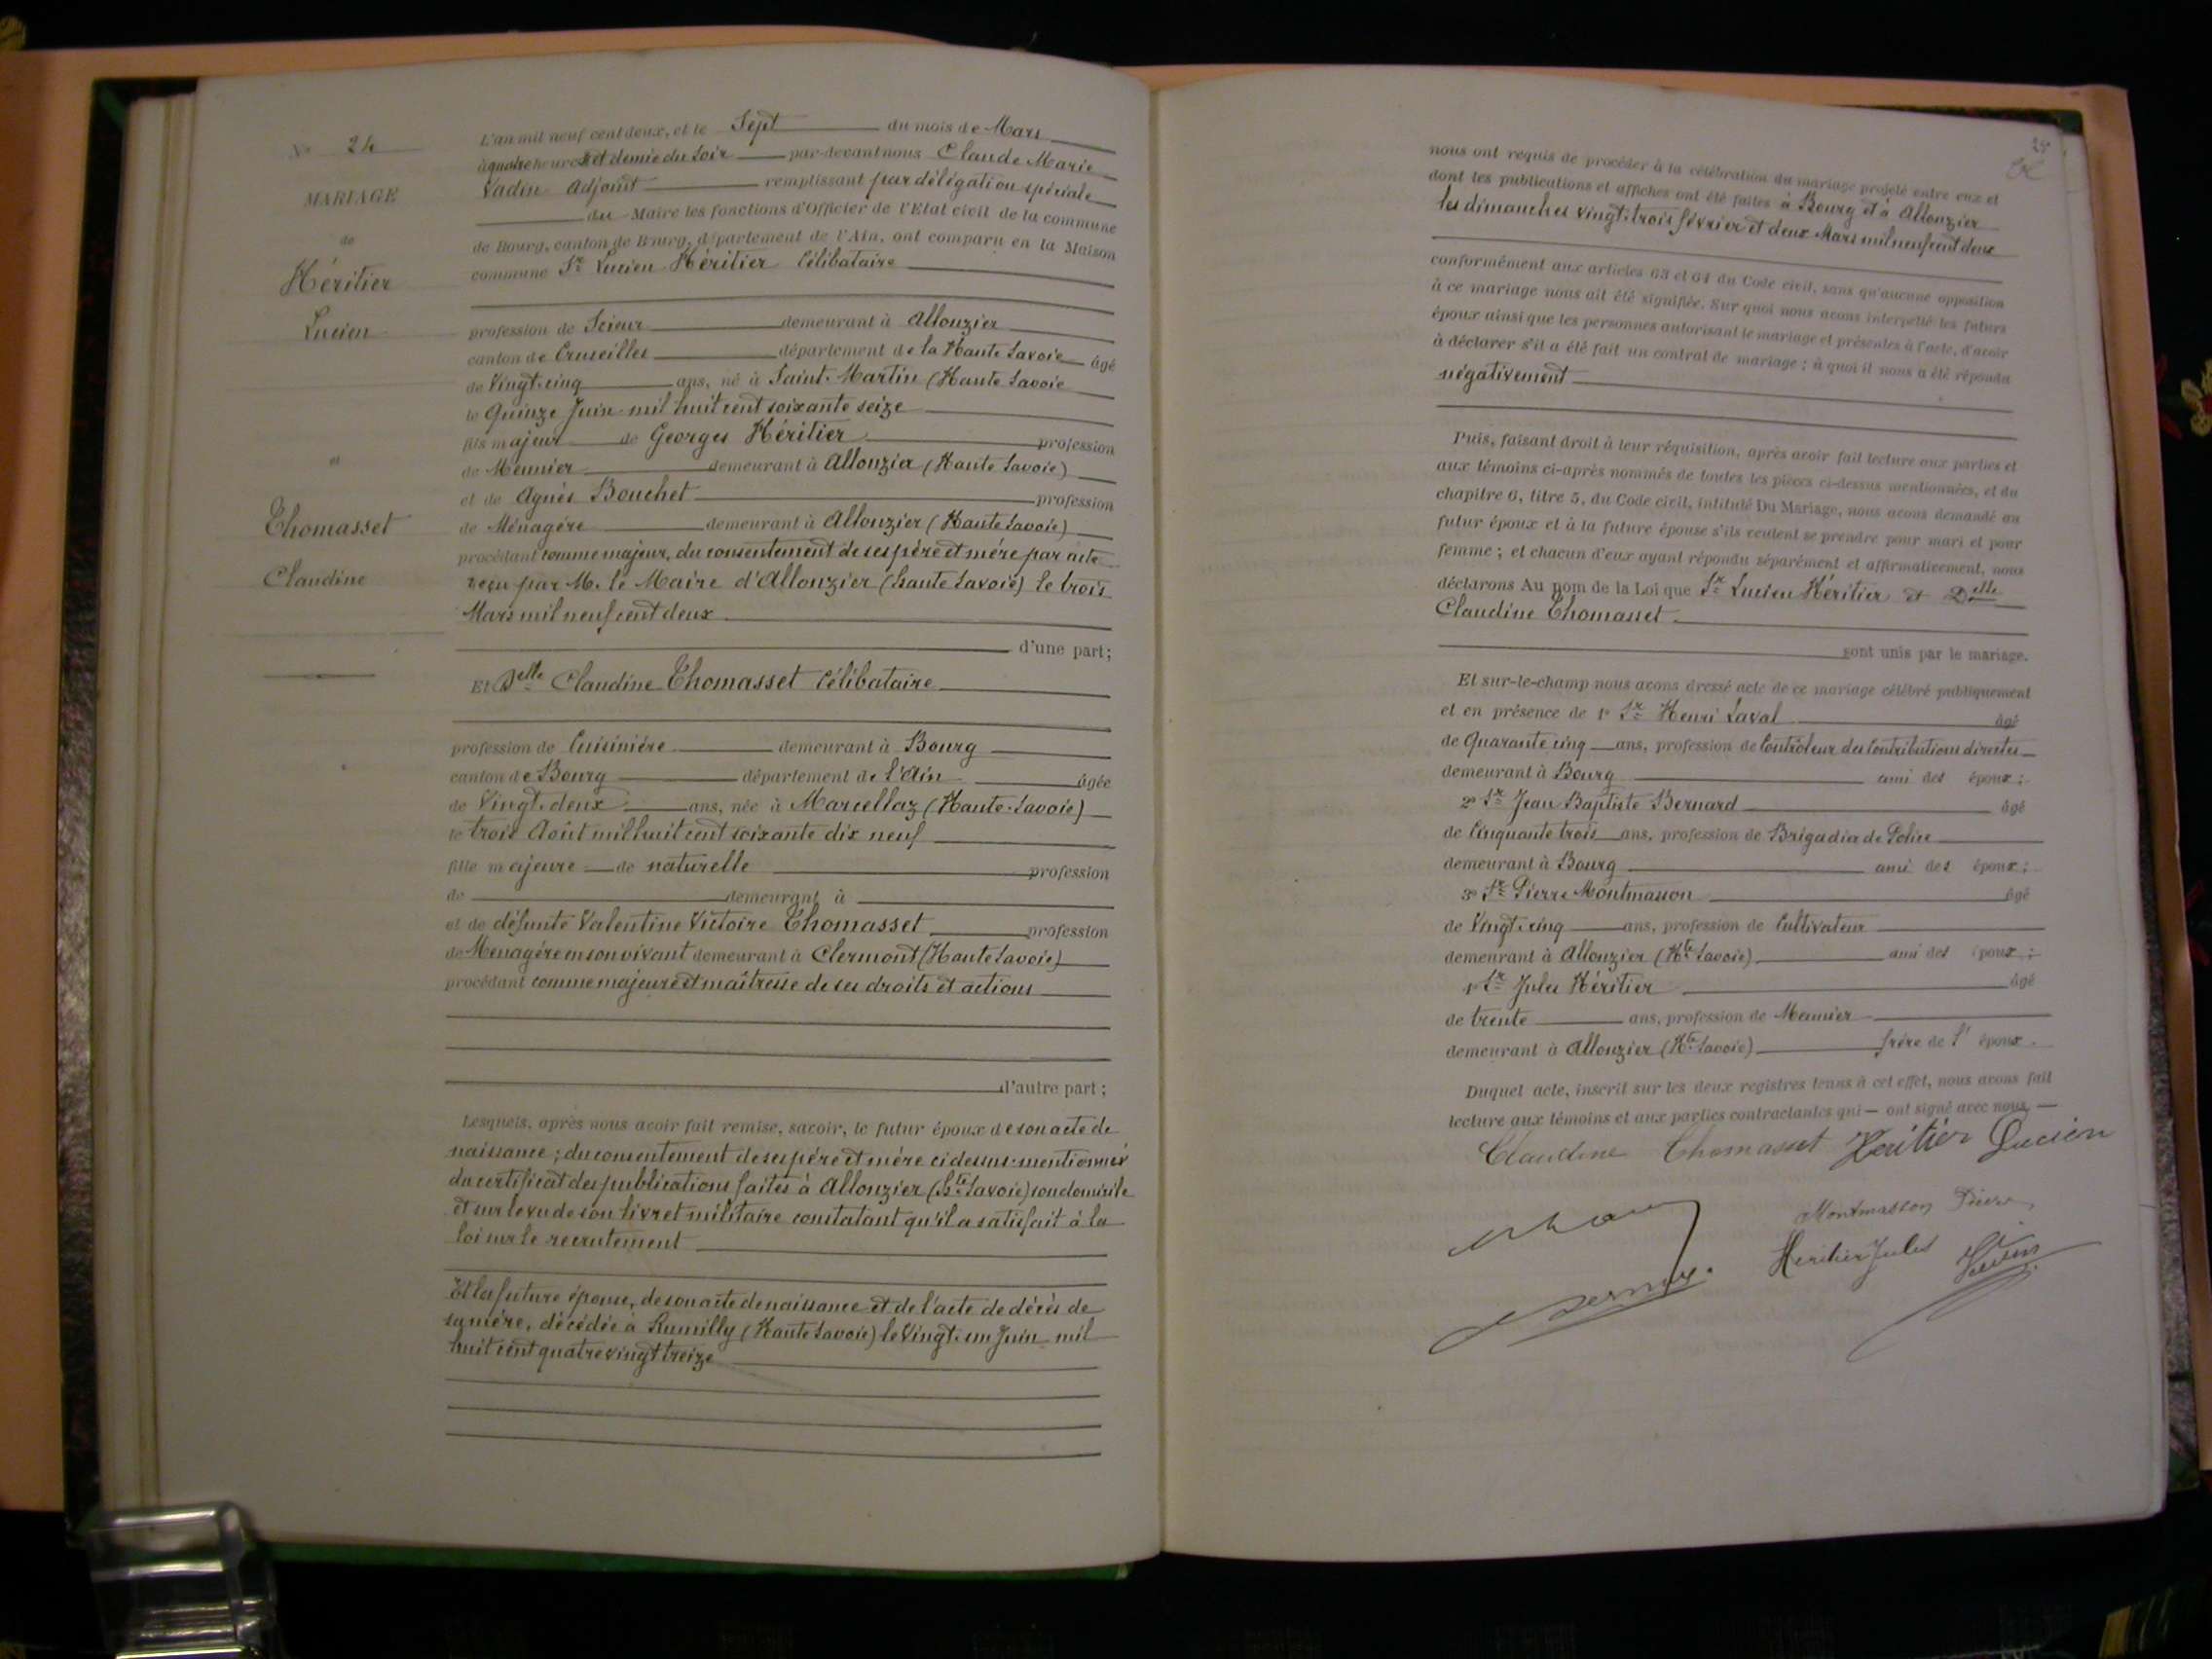 No 24
MARIAGE
de
Héritier
Lucien
et
Thomasset
Claudine
L'an mil neuf cent deux, et le Sept du mois de Mars
à quatre heures et demie du soir par-devant nous Claude Marie
Vadin Adjoint remplissant par délégation spéciale
du Maire les fonctions d'Officier de l'Etat civil de la commune
de Bourg, canton de Bourg, département de l'Ain, ont comparu en la Maison
commune Sr Lucien Héritier Célibataire
profession de Scieur demeurant à Allonzier
canton de Cruseilles département de la Haute Savoie âgé
de Vingt-cinq ans, né à Saint-Martin (Haute Savoie
le Quinze Juin mil huit cent soixante seize
fils majeur de Georges Héritier profession
de Meunier demeurant à Allonzier (Haute Savoie)
et de Agnès Bouchet profession
de Ménagère demeurant à Allonzier (Haute Savoie)
procédant comme majeur, du consentement de ses père et mère par acte
reçu par M. le Maire d'Allonzier (haute Savoie) le trois
Mars mil neuf cent deux
d'une part;
Et Delle Claudine Thomasset Célibataire
profession de Cuisinière demeurant à Bourg
canton de Bourg département de l'Ain âgée
de Vingt-deux ans, née à Marcellaz (Haute-Savoie)
le trois Août mil huit cent soixante dix neuf
fille majeure de naturelle profession
de demeurant à
et de défunte Valentine Victoire Thomasset profession
de Ménagère en son vivant demeurant à Clermont (Haute Savoie)
procédant comme majeure et maîtresse de ses droits et actions
d'autre part;
Lesquels, après nous avoir fait remise, savoir, le futur époux de son acte de
naissance; du consentement de ses père et mère ci dessus mentionné
du certificat des publications faites à Allonzier (Hte Savoie) son domicile
et sur le vu de son livret militaire constatant qu'il a satisfait à la
loi sur le recrutement
Et la future épouse, de son acte de naissance et de l'acte de décès de
sa mère, décédée à Rumilly (Haute Savoie) le Vingt-un Juin mil
huit cent quatre vingt treize
25
nous ont requis de procéder à la célébration du mariage projeté entre eux et
dont les publications et affiches ont été faites à Bourg et à Allonzier
les dimanches vingt-trois février et deux Mars mil neuf cent deux
conformément aux articles 63 et 64 du Code civil, sans qu'aucune opposition
à ce mariage nous ait été signifiée. Sur quoi nous avons interpellé les futurs
époux ainsi que les personnes autorisant le mariage et présentes à l'acte, d'avoir
à déclarer s'il a été fait un contrat de mariage; à quoi il nous a été répondu
négativement
Puis, faisant droit à leur réquisition, après avoir fait lecture aux parties et
aux témoins ci-après nommés de toutes les pièces ci-dessus mentionnées, et du
chapitre 6, titre 5, du Code civil, intitulé Du Mariage, nous avons demandé au
futur époux et à la future épouse s'ils veulent se prendre pour mari et pour
femme; et chacun d'eux ayant répondu séparément et affirmativement, nous
déclarons Au nom de la Loi que Sr Lucien Héritier et Delle
Claudine Thomasset
sont unis par le mariage.
Et sur-le-champ nous avons dressé acte de ce mariage célébré publiquement
et en présence de 1o Sr Henri Laval âgé
de Quarante cinq ans, profession de Contrôleur des Contributions directes
demeurant à Bourg ami des époux;
2o Sr Jean Baptiste Bernard âgé
de Cinquante trois ans, profession de Brigadier de Police
demeurant à Bourg ami des époux;
3o Sr Pierre Montmasson âgé
de Vingt-cinq ans, profession de Cultivateur
demeurant à Allonzier (Hte Savoie) ami des époux;
4o Sr Jules Héritier âgé
de trente ans, profession de Meunier
demeurant à Allonzier (Hte Savoie) frère de l'époux.
Duquel acte, inscrit sur les deux registres tenus à cet effet, nous avons fait
lecture aux témoins et aux parties contractantes qui ont signé avec nous
Claudine Thomasset Héritier Lucien
Montmasson Pierre
Héritier Jules